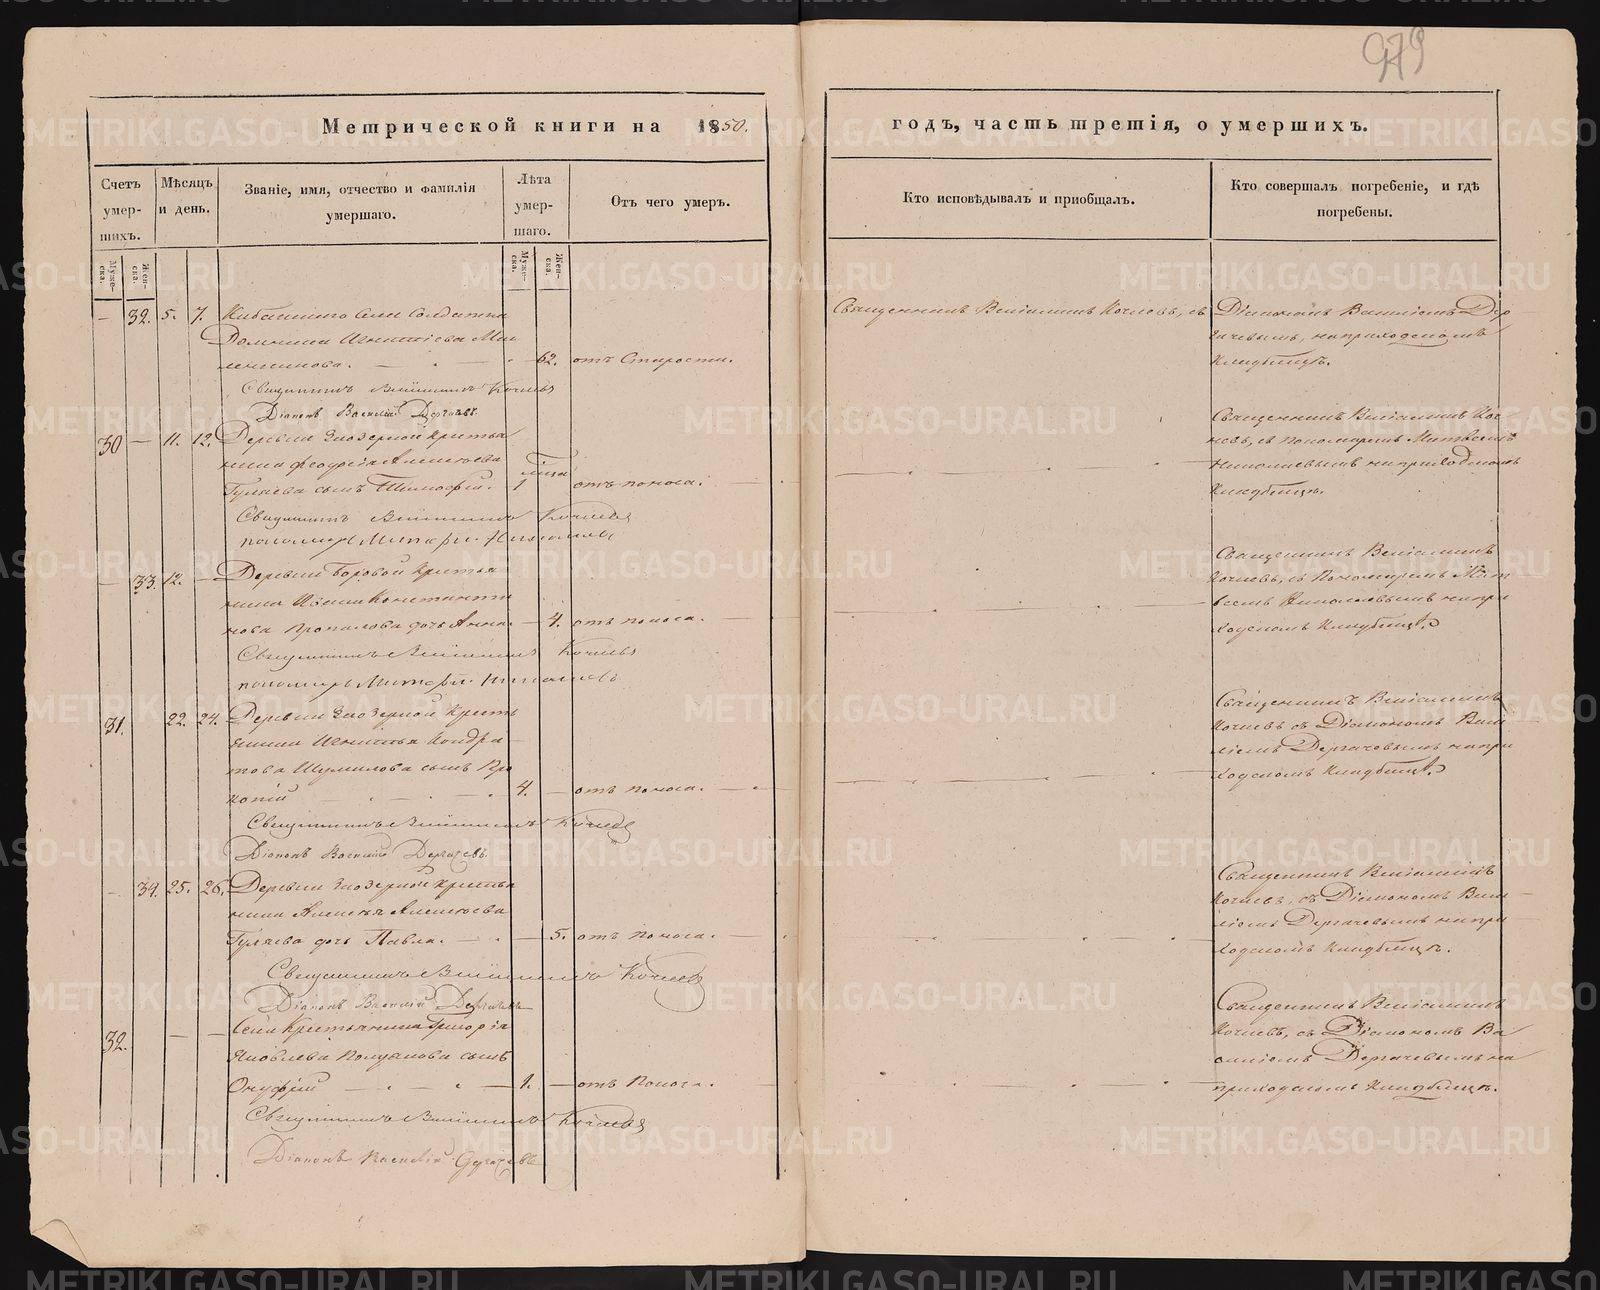 979
Метрической книги на 1850.
годъ, часть третія, о умершихъ.
Счетъ умер-шихъ.
Мѣсяцъ и день.
Званіе, имя, отчество и фамилія умершаго.
Лѣта умер-шаго.
Отъ чего умеръ.
Кто исповѣдывалъ и приобщалъ.
Кто совершалъ погребеніе, и гдѣ погребены.
Муже-ска.
Жен-ска.
Муже-ска.
Жен-ска.
— 32. 5. 7. Села Солдатка
Домника Игнатіева
62. отъ Старости.
Священникъ Веніаминъ Кочневъ
Діаконъ Василій Дергачевъ
Священникъ Веніаминъ Кочневъ, съ
Діакономъ Василіемъ Дер
гачевымъ, на приходскомъ
кладбищѣ.
30 — 11. 12. Деревни Заозерной крестья
нина Алексѣева
Гуляева сынъ Тимофей. 1 отъ поноса.
Священникъ Веніаминъ Кочневъ
пономарь Матвѣй Николаевъ
Священникъ Веніаминъ Коч
невъ, съ пономаремъ Матвѣемъ
Николаевымъ на приходскомъ
кладбищѣ.
— 33. 12. — Деревни Боровой крестья
нина Ивана Константи
нова дочь Анна. — 4. отъ поноса.
Священникъ Веніаминъ Кочневъ
пономарь Матвѣй Николаевъ
Священникъ Веніаминъ
Кочневъ, съ Пономаремъ Мат
веемъ Николаевымъ на при
ходскомъ кладбищѣ.
31. 22. 24. Деревни Заозерной кресть
янина Игнатья Кондра
това Шумилова сынъ Про
копій 4. — отъ поноса.
Священникъ Веніаминъ Кочневъ
Діаконъ Василій Дергачевъ.
Священникъ Веніаминъ
Кочневъ съ Діакономъ Васи
ліемъ Дергачевымъ на при
ходскомъ кладбищѣ.
— 34. 25. 26. Деревни Заозерной крестья
нина Алексѣя Алексѣева
Гуляева дочь Павла. — 5. отъ поноса.
Священникъ Веніаминъ Кочневъ
Діаконъ Василій Дергачевъ
Священникъ Веніаминъ
Кочневъ, съ Діакономъ Васи
ліемъ Дергачевымъ на при
ходскомъ кладбищѣ.
32. — — Села Крестьянина Григорія
Яковлева сынъ
Онуфрій 1. — отъ поноса.
Священникъ Веніаминъ Кочневъ
Діаконъ Василій Дергачевъ
Священникъ Веніаминъ
Кочневъ, съ Діакономъ Ва
силіемъ Дергачевымъ на
приходскомъ кладбищѣ.
METRIKI.GASO-URAL.RU